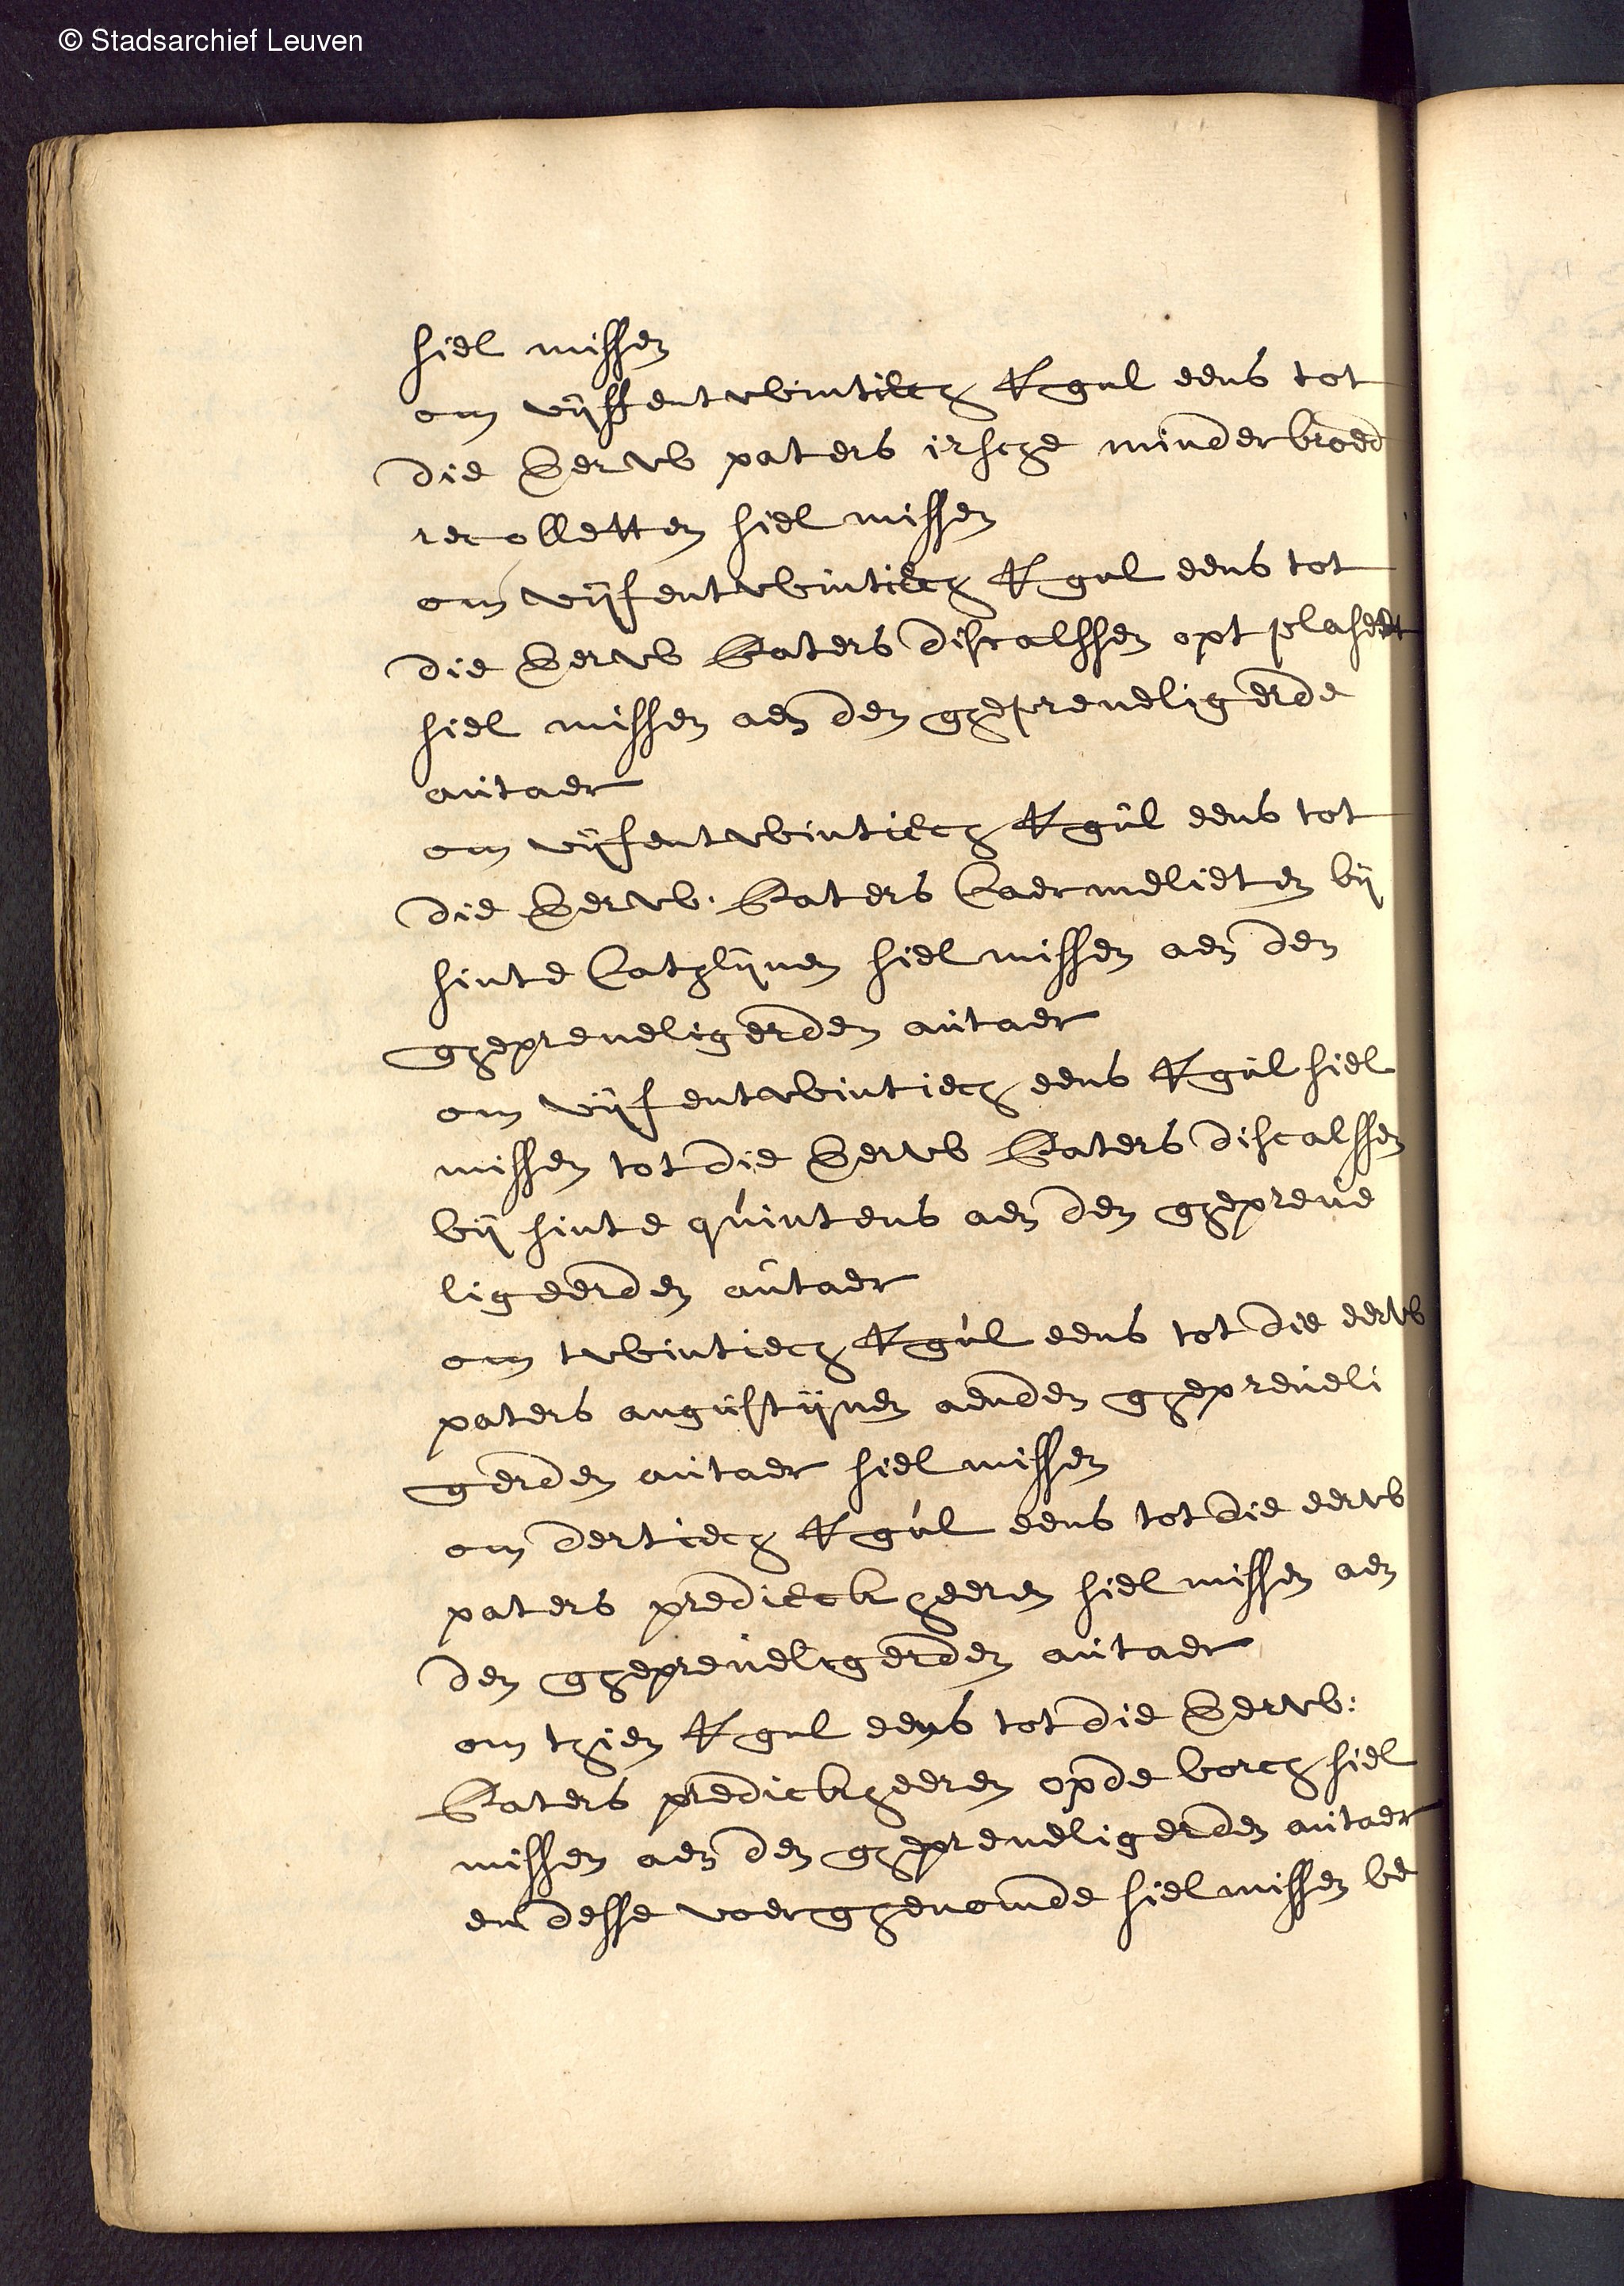 © Stadsarchief Leuven
siel missen
om vijffentwintiech R gul eens tot
die Eerw paters irsche minderbroed
recolletten siel missen
om vijfentwintiech R gul eens tot
die Eerw Paters discalssen opt plasett
siel missen aen den gheprevelig erde
autaer
om vijfentwintiech R gul eens tot
die Eerw. Paters Caermelieten bij
sinte Cathlijnen siel missen aen den
gheprevelig erden autaer
om vijfentwintiech eens R gul siel
missen tot die Eerw Paters discalssen
bij sinte quintens aen den ghepreve
ligeerden autaer
om twintiech R gul eens tot die eerw
paters augustijnen aenden ghepreveli
gerden autaer siel missen
om dertiech R gul eens tot die eerw
paters predieckheeren siel missen aen
den ghepreveligerden autaer
om thien R gul eens tot die Eerw:
Paters predickheeren opde borch siel
missen aen den ghepreveligerden autaer
en desse voerghenomde siel missen be